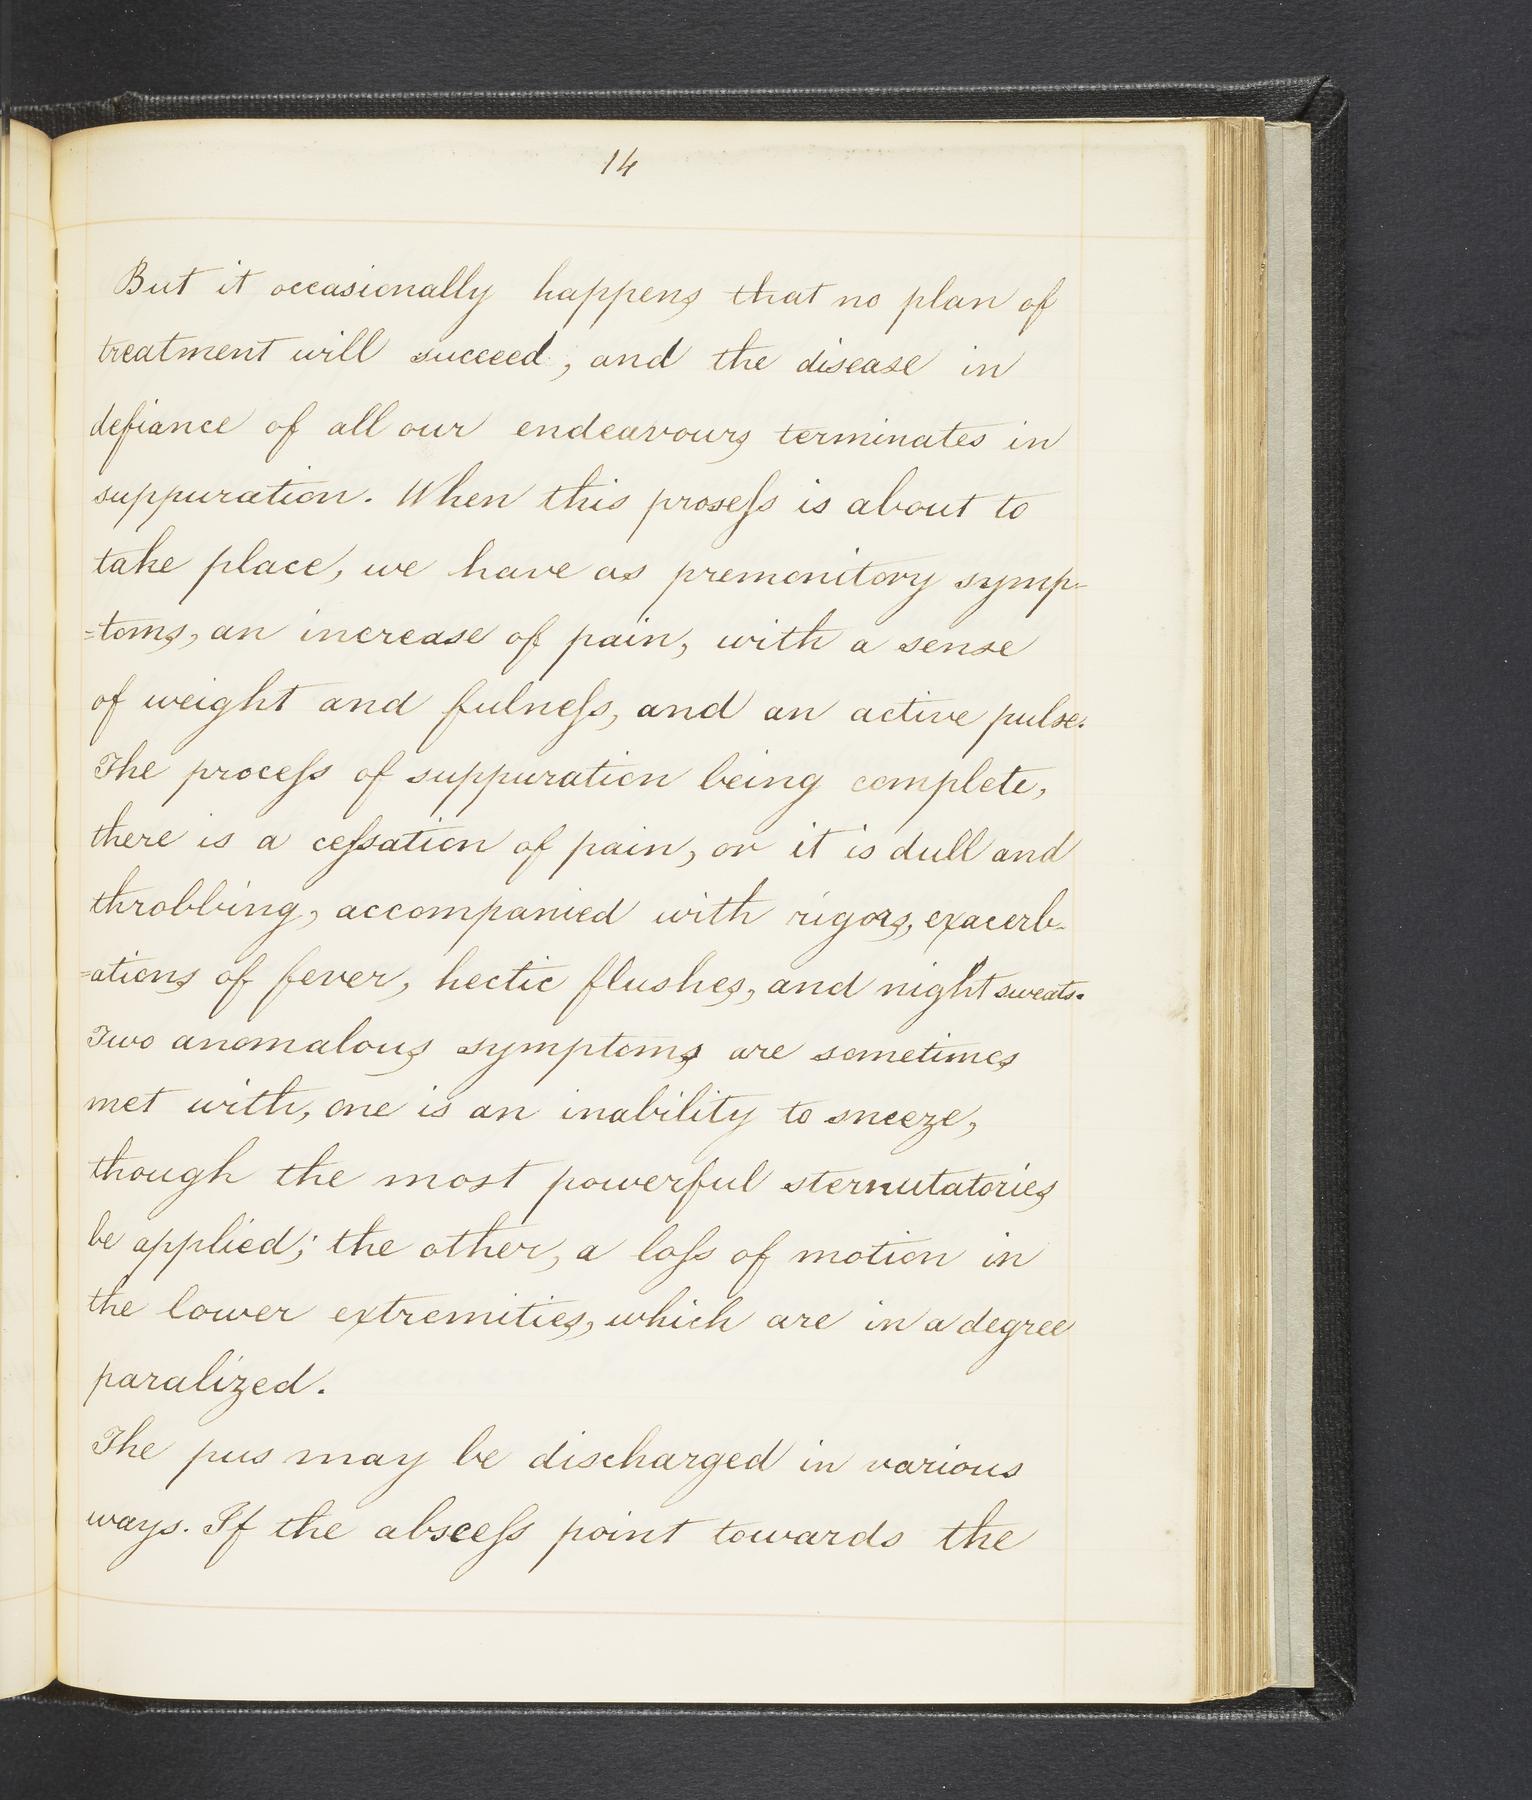 14
But it occasionally happens that no plan of
treatment will succeed, and the disease in
defiance of all our endeavours terminates in
suppuration. When this prosess is about to
take place, we have as premonitory symp-
=toms, an increase of pain, with a sense
of weight and fulness, and an active pulse.
The process of suppuration being complete,
there is a cessation of pain, or it is dull and
throbbing, accompanied with rigors, exacerb-
=ations of fever, hectic flushes, and night sweats.
Two anomalous symptoms are sometimes
met with, one is an inability to sneeze,
though the most powerful sternutatories
be applied; the other, a loss of motion in
the lower extremities, which are in a degree
paralized.
The pus may be discharged in various
ways. If the abscess point towards the